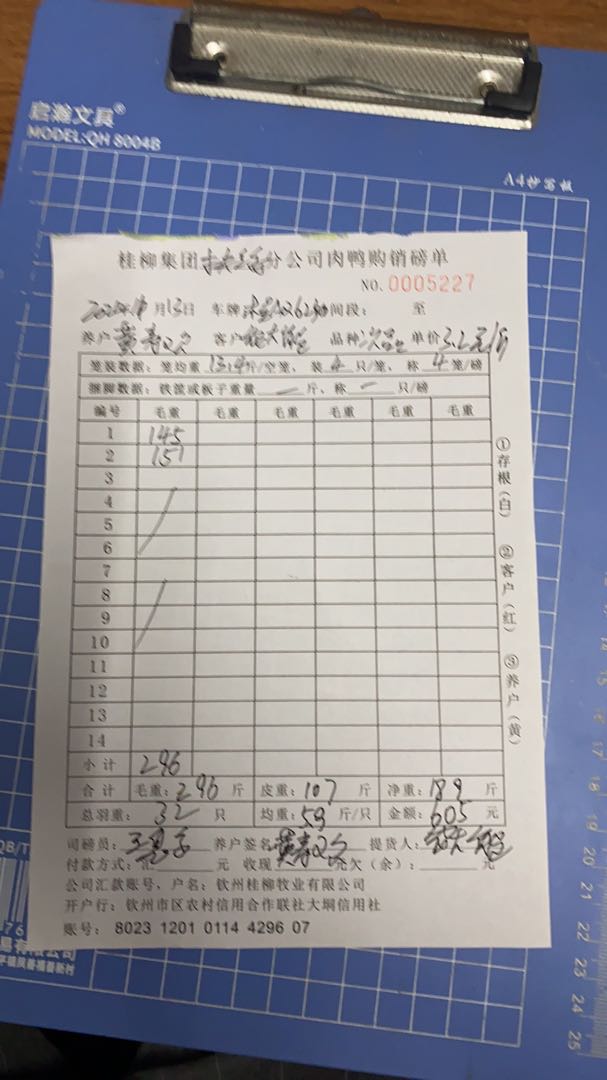 启瀚文具®
MODEL:QH 8004B
A4抄写板
桂柳集团 分公司肉鸭购销磅单
NO.0005227
月13日 车牌 时间段： 至
养户黄 客户 品种次品 单价3.2元/斤
笼装数据：笼均重13.4斤/空笼，装4只/笼，称4笼/磅
捆脚数据：铁筐或板子重量—斤、称—只/磅
编号 毛重 毛重 毛重 毛重 毛重 毛重
1 145
2 151
3
4
5
6
7
8
9
10
11
12
13
14
小计 296
合计 毛重：296斤 皮重：107斤 净重：189斤
总羽重：32只 均重：59斤/只 金额：605元
①存根（白）
②客户（红）
③养户（黄）
司磅员：王 养户签名黄 提货人：
付款方式：汇 元 收现 元欠（余）： 元
公司汇款账号，户名：钦州桂柳牧业有限公司
开户行：钦州市区农村信用合作联社大垌信用社
账号：8023 1201 0114 4296 07
QB/T
15
16
17
18
19
20
21
22
23
24
25